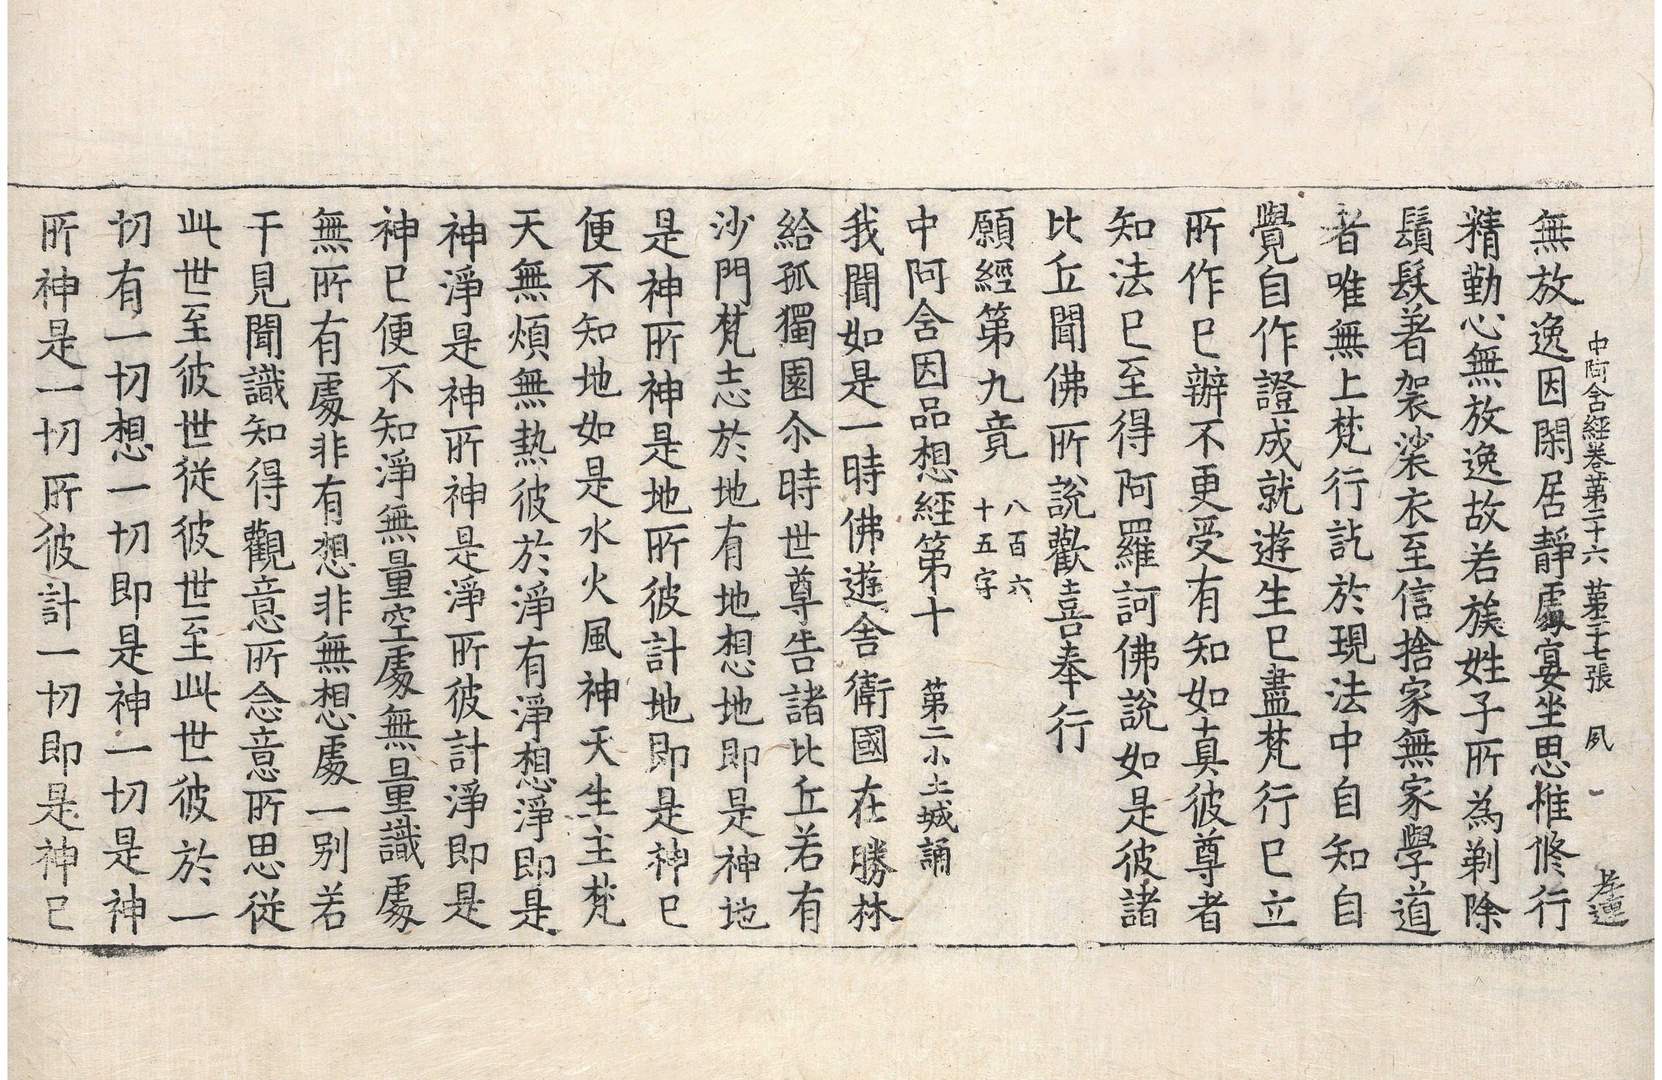 中阿含經卷第二十六 第二十七張 夙
無放逸因閑居靜處宴坐思惟修行
精勤心無放逸故若族姓子所為剃除
鬚髮著袈裟衣至信捨家無家學道
者唯無上梵行訖於現法中自知自
覺自作證成就遊生已盡梵行已立
所作已辦不更受有知如真彼尊者
知法已至得阿羅訶佛說如是彼諸
比丘聞佛所說歡喜奉行
願經第九竟 八百六十五字
中阿含因品想經第十 第二小土城誦
我聞如是一時佛遊舍衛國在勝林
給孤獨園尒時世尊告諸比丘若有
沙門梵志於地有地想地即是神地
是神所神是地所彼計地即是神已
便不知地如是水火風神天生主梵
天無煩無熱彼於淨有淨想淨即是
神淨是神所神是淨所彼計淨即是
神已便不知淨無量空處無量識處
無所有處非有想非無想處一別若
干見聞識知得觀意所念意所思從
此世至彼世從彼世至此世彼於一
切有一切想一切即是神一切是神
所神是一切所彼計一切即是神已